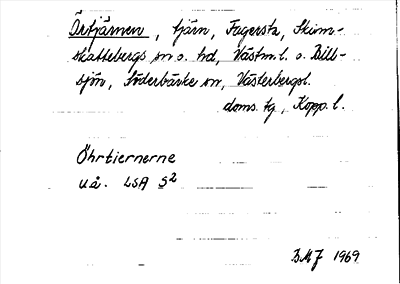 Örtjärnen, tjärn, Fagersta, Skinn-
skattebergs sn o. hd, Västm.l. o. Bill-
sjön, Söderbärke sn, Västerbergsl.
doms. tg, Kopp. l.
Öhrtiernerne
u å. LSA S2
BMJ 1969